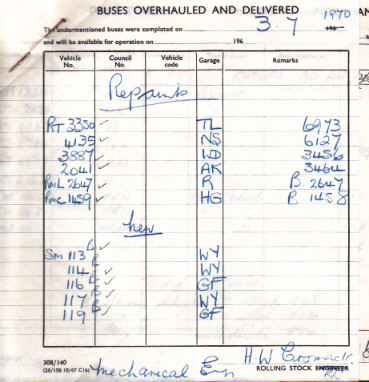 BUSES OVERHAULED AND DELIVERED
The undermentioned buses were completed on 3.7 1970 196
and will be available for operation on 196
Vehicle No. Council No. Vehicle code Garage Remarks
Repaints
RT 3350 ✓ TL 6973
4135 ✓ NS 6127
3887 ✓ WD 3456
2041 ✓ AR 3464
RML 2647 ✓ R B. 2647
RMC 1459 ✓ HG B. 1458
New
SM 113 B ✓ WY
114 B ✓ WY
116 B ✓ GF
117 B ✓ WY
119 B ✓ GF
308/140
(20/150 10/67 C16) Mechanical Eng H W
ROLLING STOCK ENGINEER